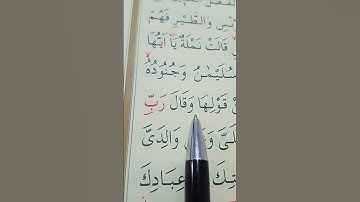 نْسِ وَالطَّيْرِ فَهُمْ
قَالَتْ نَمْلَةٌ يَٓا اَيُّهَا
سُلَيْمٰنُ وَجُنُودُهُ
قَوْلِهَا وَقَالَ رَبِّ
وَالِدَىَّ
عِبَادِكَ